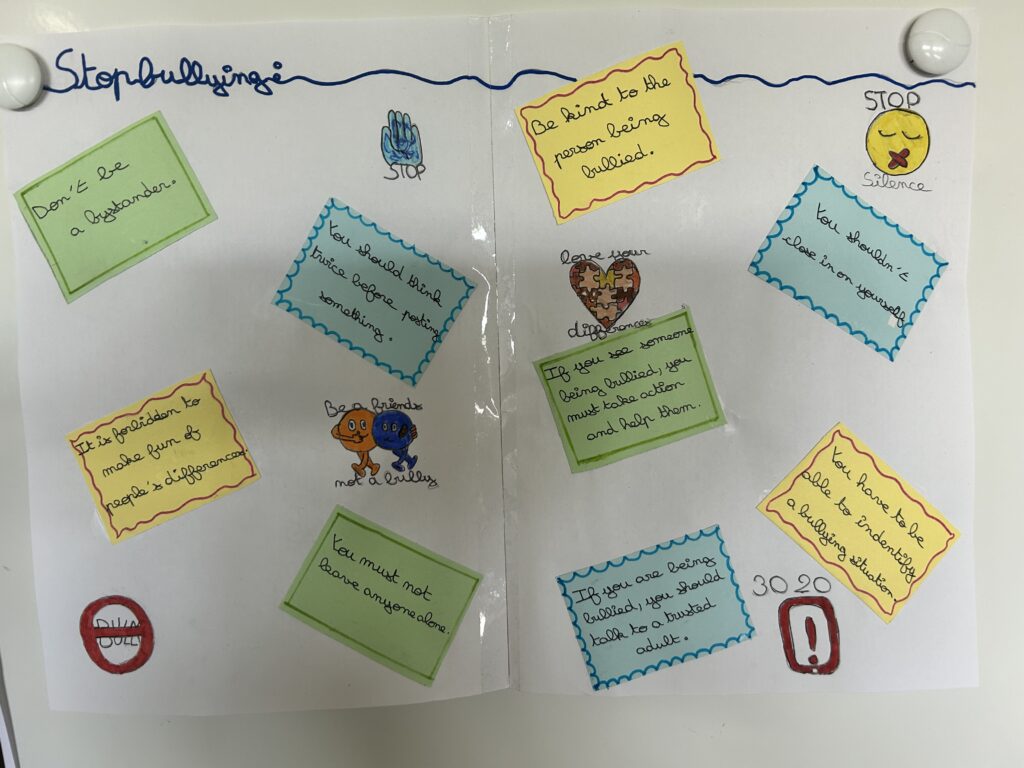 Stop bullying :
Don't be
a bystander.
STOP
Be kind to the
person being
bullied.
STOP
Silence
You should think
twice before posting
something.
love your
differences
You shouldn't
close in on yourself
It is forbidden to
make fun of
people's differences.
Be a friends
not a bullys
If you see someone
being bullied, you
must take action
and help them.
You have to be
able to indentify
a bullying situation
You must not
leave anyone alone.
If you are being
bullied, you should
talk to a trusted
adult.
30 20
!